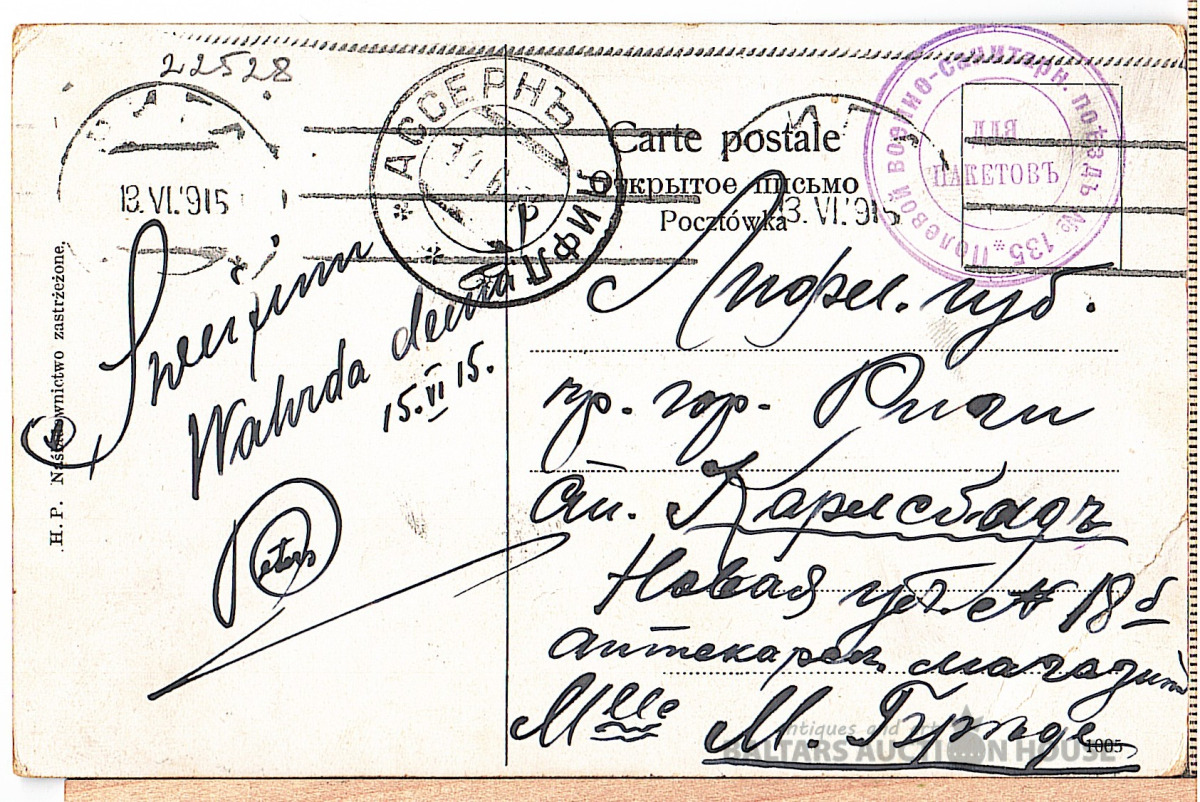 22528
13.VI.915
АССЕРНЪ
ЛИФЛ
Carte postale
Открытое письмо
Pocztówka
13.VI.915
Полевой военно-санитарн. поѣздъ № 135
ДЛЯ
ПАКЕТОВЪ
Sweizinu
Wahrda deena
15.VI 15.
Peters
Лифл. губ.
гор. Риги
Карлсбадъ
Новая ул. № 18
аптекарск. магазинъ
Mlle М.
H. P. Naśladownictwo zastrzeżone.
1005
Antiques and art
BALTARS AUCTION HOUSE